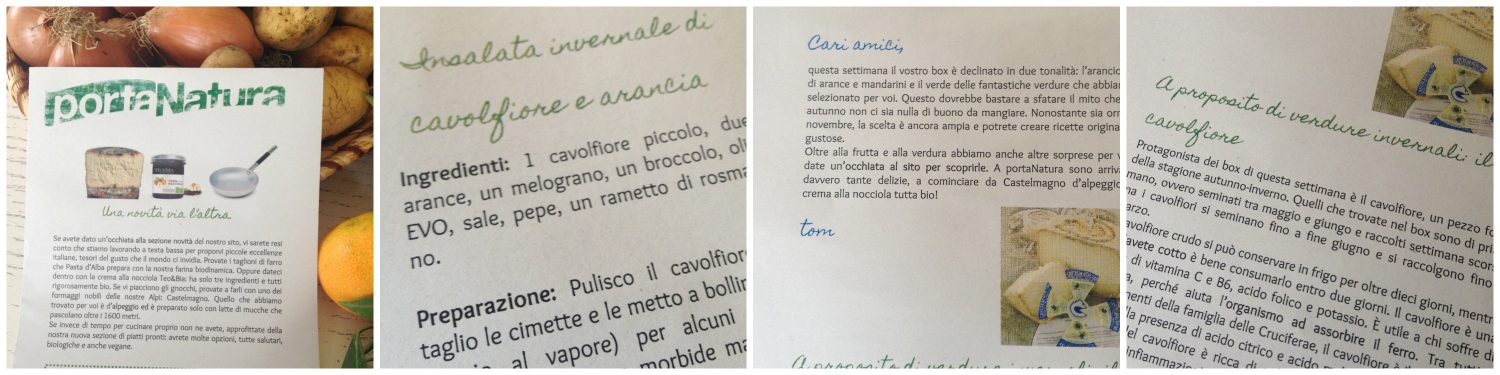 portaNatura
Una novità via l'altra
Se avete dato un'occhiata alla sezione novità del nostro sito, vi sarete resi
conto che stiamo lavorando a testa bassa per proporvi piccole eccellenze
italiane, tesori del gusto che il mondo ci invidia. Provate i taglioni di farro
che Pasta d'Alba prepara con la nostra farina biodinamica. Oppure dateci
dentro con la crema alla nocciola Teo&Bia: ha solo tre ingredienti e tutti
rigorosamente bio. Se vi piacciono gli gnocchi, provate a farli con uno dei
formaggi nobili delle nostre Alpi: Castelmagno. Quello che abbiamo
trovato per voi è d'alpeggio ed è preparato solo con latte di mucche che
pascolano oltre i 1600 metri.
Se invece di tempo per cucinare proprio non ne avete, approfittate della
nostra nuova sezione di piatti pronti: avrete molte opzioni, tutte salutari,
biologiche e anche vegane.
Insalata invernale di
cavolfiore e arancia
Ingredienti: 1 cavolfiore piccolo, due
arance, un melograno, un broccolo, oli
EVO, sale, pepe, un rametto di rosma
no.
Preparazione: Pulisco il cavolfiore
taglio le cimette e le metto a bollir
al vapore) per alcuni
morbide ma
Cari amici,
questa settimana il vostro box è declinato in due tonalità: l'arancio
di arance e mandarini e il verde delle fantastiche verdure che abbiam
selezionato per voi. Questo dovrebbe bastare a sfatare il mito che
autunno non ci sia nulla di buono da mangiare. Nonostante sia orm
novembre, la scelta è ancora ampia e potrete creare ricette origina
gustose.
Oltre alla frutta e alla verdura abbiamo anche altre sorprese per v
date un'occhiata al sito per scoprirle. A portaNatura sono arriva
davvero tante delizie, a cominciare da Castelmagno d'alpeggio
crema alla nocciola tutta bio!
tom
A proposito di verdure invernali: il
A proposito di verdure invernali: il
cavolfiore
Protagonista dei box di questa settimana è il cavolfiore, un pezzo fo
della stagione autunno-inverno. Quelli che trovate nel box sono di pri
mano, ovvero seminati tra maggio e giungo e raccolti settimana scors
ma i cavolfiori si seminano fino a fine giugno e si raccolgono fino
arzo.
avolfiore crudo si può conservare in frigo per oltre dieci giorni, mentr
avete cotto è bene consumarlo entro due giorni. Il cavolfiore è una
di vitamina C e B6, acido folico e potassio. È utile a chi soffre di
perché aiuta l'organismo ad assorbire il ferro. Tra tutti
menti della famiglia delle Cruciferae, il cavolfiore è il
la presenza di acido citrico e acido
del cavolfiore è ricca di
infiammazion